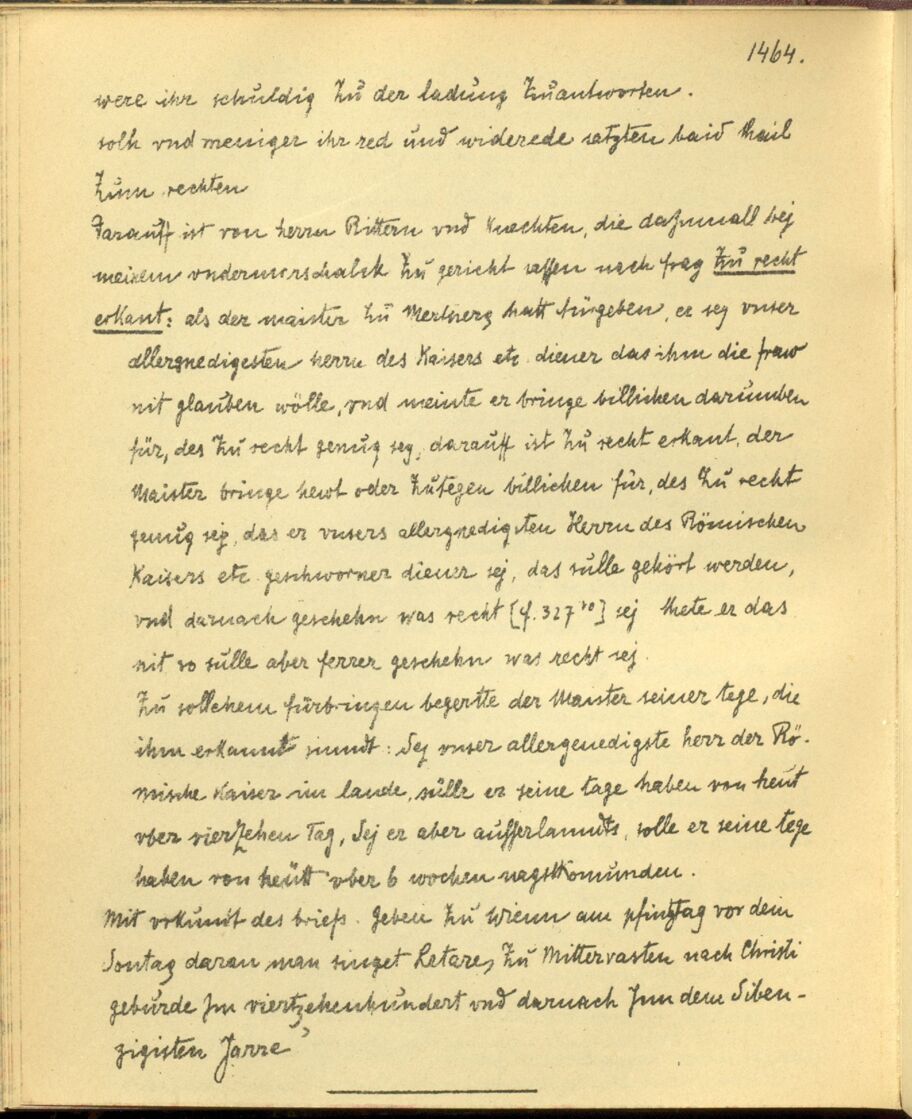 1464.
were ihr schuldig zu der ladung zuantworten.
solh vnd meniger ihr red und widerede satzten baid thail
zum rechten
Darauff ist von herrn Rittern vnd Knechten, die dazumall bej
meinem vndermarschalkh zu gericht sassen nach frag zu recht
erkant: als der maister zu Merberg hatt fürgeben, er sey vnser
allergnedigesten herrn des Kaisers etc. diener das ihm die fraw
nit glauben wölle, vnd meinte er bringe billichen darumben
für, des zu recht genug sey, darauff ist zu recht erkant, der
Maister bringe hewt oder zutegen billichen für, des zu recht
genug sej, das er vnsers allergnedigsten Herrn des Römischen
Kaisers etc. geschworner diener sej, das sülle gehört werden,
vnd darnach geschehn was recht [f. 327 vo] sej thete er das
nit so sülle aber ferrer geschehn was recht sej.
Zu sollchem fürbringen begertte der Maister seiner tege, die
ihm erkannt sinndt: Sej vnser allergenedigste herr der Rö-
mische Kaiser im lande, sülle er seine tage haben von heut
vber vierzehen Tag, Sej er aber ausserlanndts, solle er seine tege
haben von heütt vber 6 wochen nagstkomunden.
Mit vrkunnt des briefs. Geben zu Wienn am pfinztag vor dem
Sontag daran man singet Letare, zu Mittervasten nach Christi
geburde Jm viertzehenhundert vnd darnach Jnn dem Siben-
zigisten Jarre"